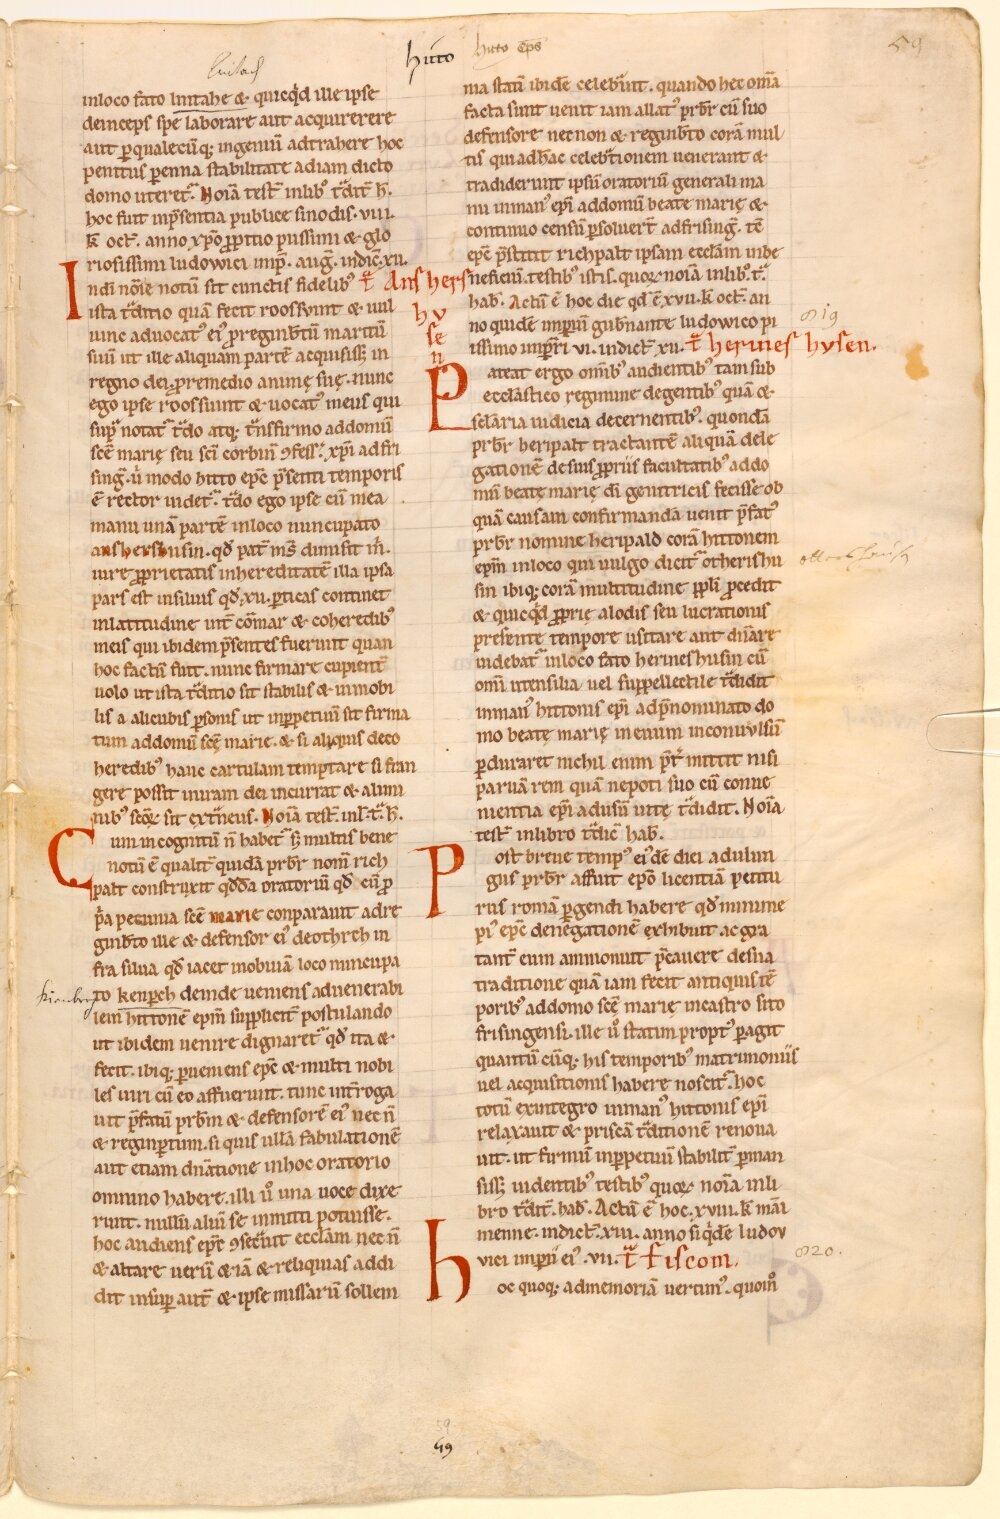 hitto hitto eps
59
inloco fato liutahe & quicqd ille ipse
deinceps spe laborare aut acquirerere
aut ꝑqualecūq; ingeniū adtrahere hoc
penitus ꝑenna stabilitate adiam dicto
domo uteret᷑. Noīa test̄ inlib᷒ t᷑dit̄ h̄.
hoc fuit inp̄sentia publice sinodis. viii.
k̄ oct̄. anno xp̄o ꝓpitio piissimi & glo
riosissimi ludowici imp̄. aug̃. indic̄. xii.
t᷑ Anshershysen
Indī noīe notū sit cunctis fidelib᷒
ista t᷑ditio quā fecit roosuuint & uul
iunc aduocat᷒ ei᷒ ꝓreginb̄tū maritū
suū ut ille aliquam partē acquisiss& in
regno dei. ꝓremedio animę suę. nunc
ego ipse roossuint & uocat᷒ meus qui
sup̄ notat᷑ t᷑do atq; t᷑nsfirmo addomū
scē marię seu scī corbini ꝯfess᷑. xp̄i adfri
sing̃. ū modo hitto ep̄c p̄senti temporis
ē rector uidet᷑. t᷑do ego ipse cū mea
manu unā partē inloco nuncupato
anshershusin. qd̄ pat̄ ms̄ dimisit m̄.
iure ꝓprietatis inhereditatē illa ipsa
pars est insiluis qd̄. xv. ꝑticas continet
inlatitudine int̄ cōmar & coheredib᷒
meis qui ibidem p̄sentes fuerunt quan
hoc factū fuit. nunc firmare cupient̄
uolo ut ista t᷑ditio sit stabilis & inmobi
lis a alicubis ꝑsonis ut inꝑpetuū sit firma
tum addomū scę marie. & si aliquis deco
heredib᷒ hanc cartulam temptare si fran
gere possit iniram dei incurrat & alum
nib᷒ scōꝝ sit ext᷑neus. Noīa test̄. inl̄. t᷑. h̄.
Cum incognitū n̄ habet᷑ s; multis bene
notū ē qualit̄ quidā prb̄r nom̄ rich
palt construxit qd̄dā oratoriū qd̄ cū ꝓ
p̄a pecunia scē marie conparauit adre
ginb̄to ille & defensor ei᷒ deothrch in
fra silua qd̄ iacet inobuiā loco nuncupa
to kenp̄ch deinde ueniens aduenerabi
lem hittonē ep̄m supplicit̄ postulando
ut ibidem uenire dignaret᷑ qd̄ ita &
fecit. ibiq; ꝑueniens ep̄c & multi nobi
les uiri cū eo affuerunt. tunc int̄roga
uit p̄fatū prb̄m & defensorē ei᷒ nec n̄
& reginꝑtum. si quis ullā fabulationē
aut etiam dn̄atione inhoc oratorio
omnino habere. illi ū una uoce dixe
runt. nullū aliū se inmitti potuisse.
hoc audiens ep̄c ꝯsec̄uit ecclām nec n̄
& altare uerū & iā & reliquias addi
dit insuꝑ aut̄ & ipse missarū sollem
nia statū ibidē celeb̄uit. quando hec omā
facta sunt uenit iam allat᷒ prb̄r cū suo
defensore necnon & reginb̄to corā mul
tis qui adhāc celeb̄tionem uenerant &
tradiderunt ipsū oratoriū generali ma
nu inman᷒ ep̄i addomū beate marię &
continuo censū ꝑsoluer̄t adfrising̃. tē
ep̄c p̄stitit richpalt ipsam ecclām inbe
neficiū. testib᷒ istis. quoꝝ noīa inlib᷒. t᷑.
hab̄. Actū ē hoc die qd̄ ē. xvii. k̄ oct̄. an
no quidē imperiū gub̄nante ludowico pi
issimo imp̄ri vi. indict̄ xii. t᷑ hermes hysen.
Pateat ergo omīb᷒ audientib᷒ tam sub
ecclāstico regimine degentib᷒ quā &
sclāria iudicia decernentib᷒. quondā
prb̄r heripalt tractantē aliquā dele
gationē desuis ꝓpriis facultatib᷒ addo
mū beatę marię dī genitricis fecisse ob
quā causam confirmandā uenit p̄fat᷒
prb̄r nomine heripald corā hittonem
ep̄m inloco qui uulgo dicit᷑ otherishu
sin ibiq; corā multitudine ppl̄i ꝓcedit
& quicqd̄ ꝓprię alodis seu lucrationis
presente tempore usitare aut dn̄are
uidebat᷑ inloco fato hermeshusin cū
omī utensilia uel supellectile t᷑didit
inman᷒ hittonis ep̄i adp̄nominato do
mo beatę marię ineuum inconuulsū
ꝑduraret nichil enim pr̄t mittit nisi
paruā rem quā nepoti suo cū conue
nientia ep̄i adusū uitę t᷑didit. Noīa
test̄ inlibro t᷑dic̄ hab̄.
Post breue temp᷒ ei᷒dē diei adulun
gus prb̄r affuit ep̄o licentiā petitu
rus romā ꝑgendi habere qd̄ minime
pi᷒ ep̄c denegationē exhibuit ac gra
tant̄ eum ammonuit p̄cauere desua
traditione quā iam fecit antiquis tē
porib᷒ addomo scē marię incastro sito
frisingensi. ille ū statim propt̄ ꝑagit
quantū cūq; his temporib᷒ matrimoniis
uel acquisitionis habere noscit᷑. hoc
totū exintegro inman᷒ hittonis ep̄i
relaxauit & priscā t᷑ditionē renoua
uit. ut firmū inꝑpetuū stabilit̄ ꝑman
siss; uidentib᷒ testib᷒ quoꝝ noīa inli
bro t᷑dit̄. hab̄. Actū ē hoc. xviii. k̄ māi
menne. indict̄. xiii. anno siq̄dē ludov
vici imperii ei᷒. vii. t᷑ fiscom.
hoc quoq; admemoriā uertim᷒. quom̄
59
59